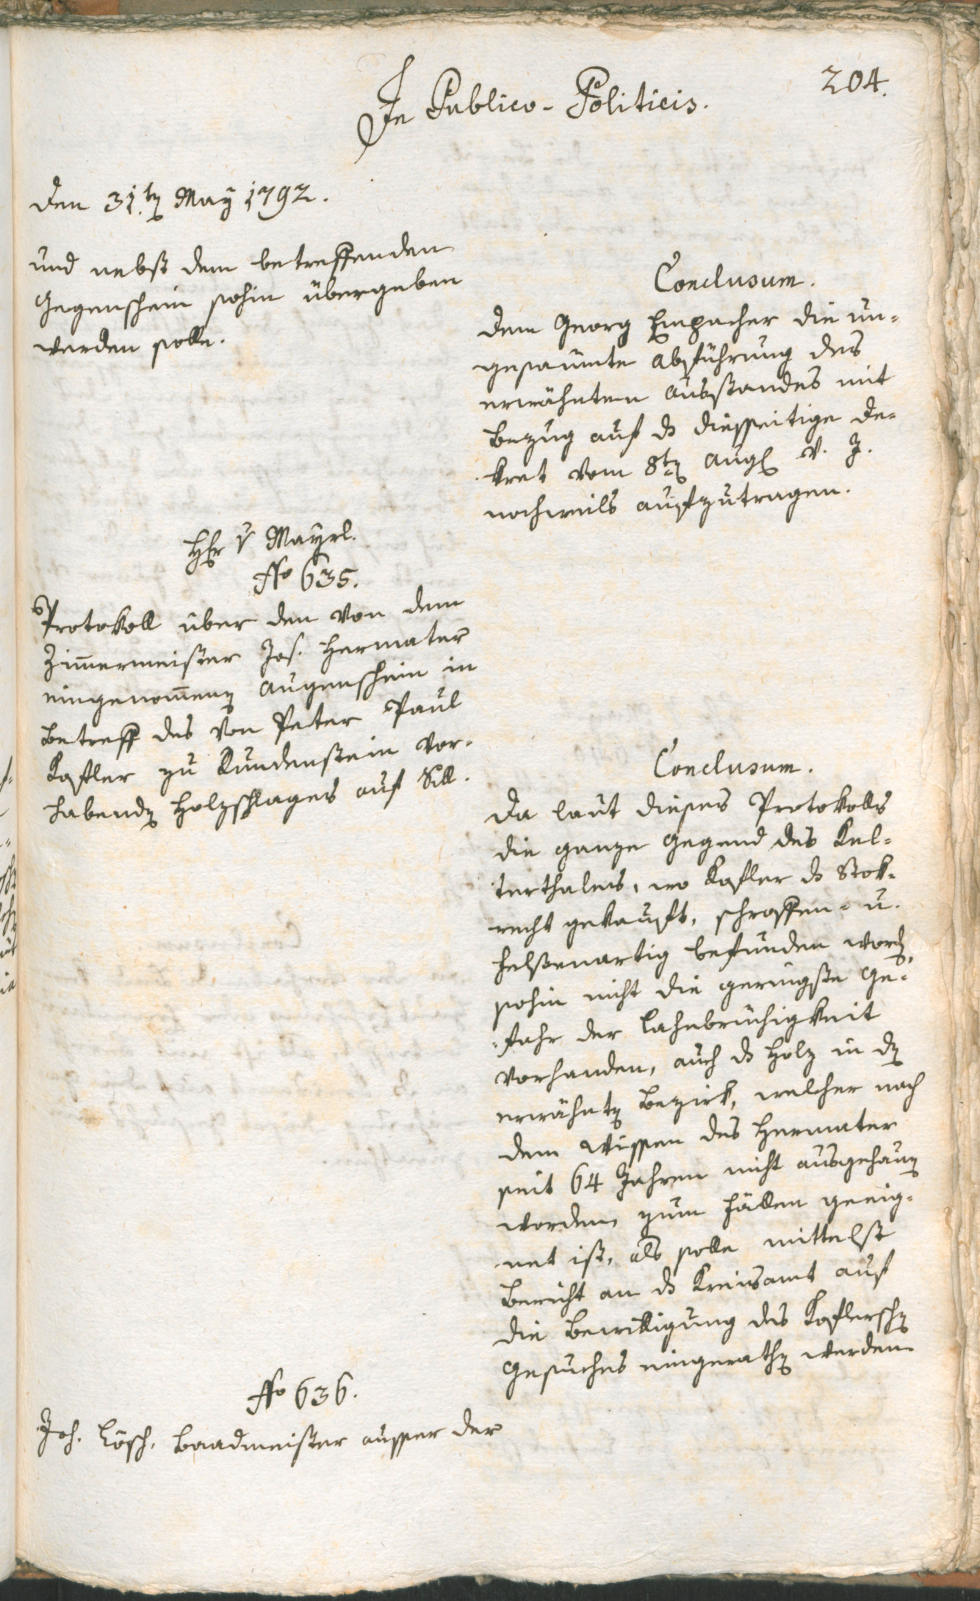 204.
In Publico-Politicis.
den 31.ten May 1792.
und nebst dem betreffenden
Gegenschein sohin übergeben
werden solle.
Conclusum.
dem Georg Empacher die un-
gesaumte Abführung des
erwähnten Ausstandes mit
Bezug auf das diesseitige De-
kret vom 8ten Aug. v. J.
nochmals aufzutragen.
Hr. v. Mayrl.
No 635.
Protokoll über den von dem
Zimmermeister Jos. Hermater
eingenommenen Augenschein in
Betreff des von Peter Paul
Kofler zu Rundenstein vor-
habenden Holzschlages auf Sill.
Conclusum.
Da laut dieses Protokolls
die ganze Gegend des Kal-
terthales, wo Kofler das Stok-
recht gekauft, schroffen- u.
felsenartig befunden worden,
sohin nicht die geringste Ge-
fahr der Lahnbrüchigkeit
vorhanden, auch das Holz in dem
erwähnten Bezirk, welcher nach
dem Wissen des Hermater
seit 64 Jahren nicht ausgehauen
worden, zum Fällen geeig-
net ist, als solle mittelst
Bericht an das Kreisamt auf
die Bewilligung des Koflerschen
Gesuches eingerathen werden.
No 636.
Joh. Lösch, Baadmeister ausser der